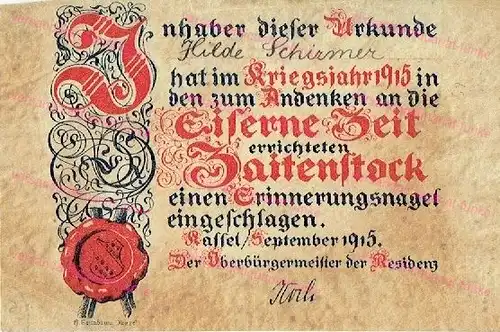 Inhaber dieser Urkunde
Hilde Schirmer
hat im Kriegsjahr 1915 in
den zum Andenken an die
Eiserne Zeit
errichteten
Zaitenstock
einen Erinnerungsnagel
eingeschlagen.
Kassel/September 1915.
Der Oberbürgermeister der Residenz
Koch